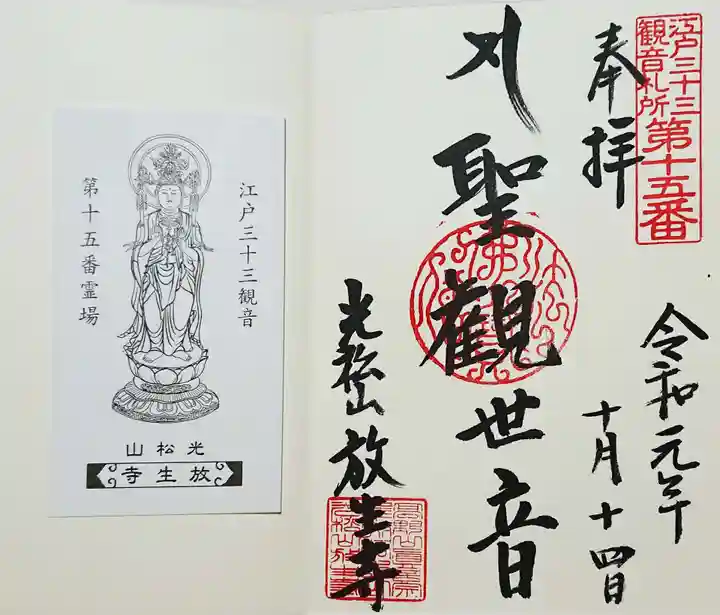 江戸三十三
観音札所
第十五番
奉拝
令和元年
十月十四日
聖観世音
光松山
放生寺
江戸三十三観音
第十五番霊場
山松光
寺生放